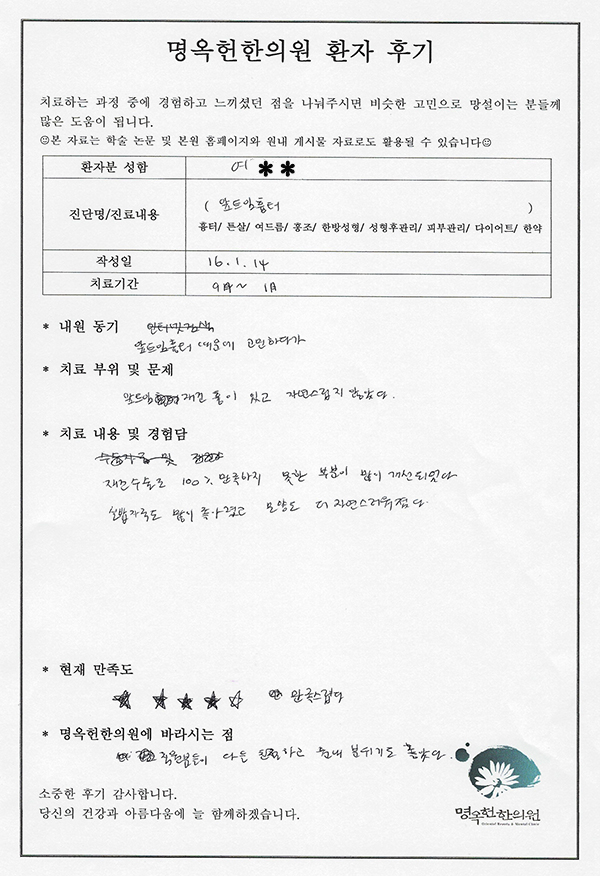 명옥헌한의원 환자 후기
치료하는 과정 중에 경험하고 느끼셨던 점을 나눠주시면 비슷한 고민으로 망설이는 분들께
많은 도움이 됩니다.
☺본 자료는 학술 논문 및 본원 홈페이지와 원내 게시물 자료로도 활용될 수 있습니다☺
환자분 성함 여 **
진단명/진료내용 ( 앞트임흉터 )
흉터/ 튼살/ 여드름/ 홍조/ 한방성형/ 성형후관리/ 피부관리/ 다이어트/ 한약
작성일 16. 1. 14
치료기간 9월 ~ 1월
* 내원 동기
앞트임흉터 때문에 고민하다가
* 치료 부위 및 문제
앞트임 재건 홈이 있고 자연스럽지 않았다.
* 치료 내용 및 경험담
재건수술로 100% 만족하지 못한 부분이 많이 개선되었다
실밥자국도 많이 좋아졌고 모양도 더 자연스러워졌다.
* 현재 만족도
★ ★ ★ ★ ☆ 만족스럽다
* 명옥헌한의원에 바라시는 점
직원분들이 다들 친절하고 원내 분위기도 좋았다.
소중한 후기 감사합니다.
당신의 건강과 아름다움에 늘 함께하겠습니다.
명옥헌한의원